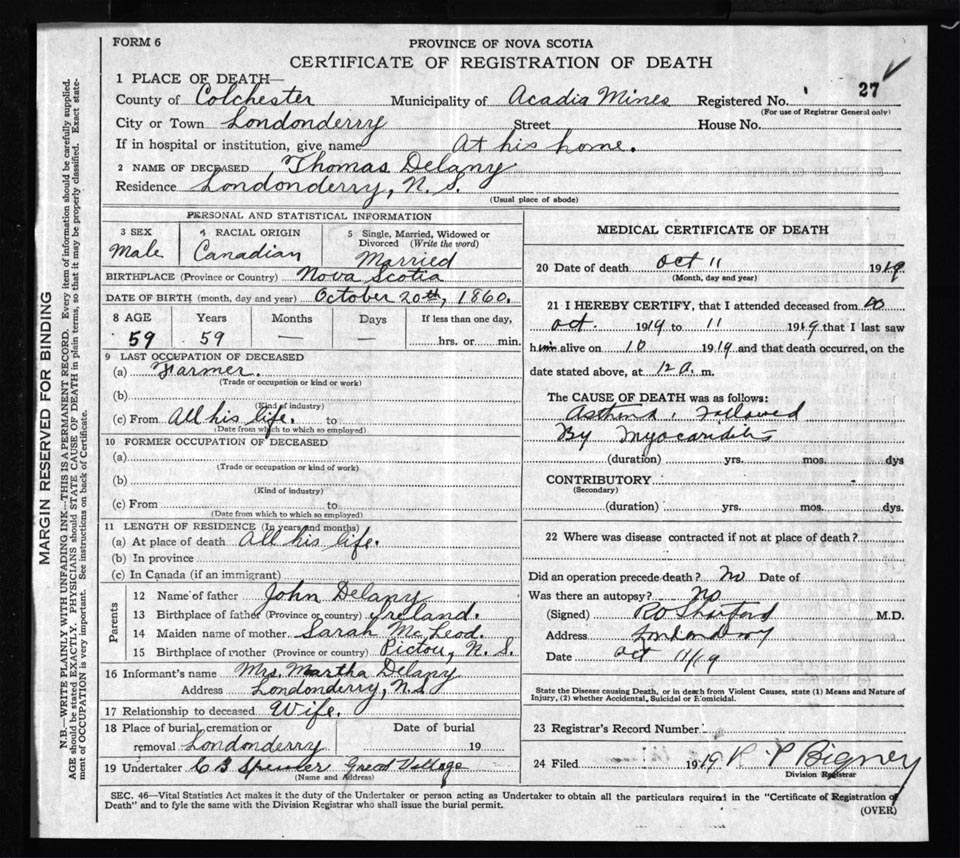 FORM 6
PROVINCE OF NOVA SCOTIA
CERTIFICATE OF REGISTRATION OF DEATH
1 PLACE OF DEATH—
County of Colchester Municipality of Acadia Mines Registered No. 27 ✓
(For use of Registrar General only)
City or Town Londonderry Street House No.
If in hospital or institution, give name At his home.
2 NAME OF DECEASED Thomas Delany
Residence Londonderry, N. S.
(Usual place of abode)
PERSONAL AND STATISTICAL INFORMATION
3 SEX 4 RACIAL ORIGIN 5 Single, Married, Widowed or Divorced (Write the word)
Male Canadian Married
BIRTHPLACE (Province or Country) Nova Scotia
DATE OF BIRTH (month, day and year) October 20th, 1860.
8 AGE Years Months Days If less than one day,
59 59 — — hrs. or min.
9 LAST OCCUPATION OF DECEASED
(a) Farmer.
(Trade or occupation or kind or work)
(b)
(Kind of industry)
(c) From All his life. to
(Date from which to which so employed)
10 FORMER OCCUPATION OF DECEASED
(a)
(Trade or occupation or kind of work)
(b)
(Kind of industry)
(c) From to
(Date from which to which so employed)
11 LENGTH OF RESIDENCE (In years and months)
(a) At place of death All his life.
(b) In province
(c) In Canada (if an immigrant)
Parents
12 Name of father John Delany
13 Birthplace of father (Province or country) Ireland.
14 Maiden name of mother Sarah McLeod.
15 Birthplace of mother (Province or country) Pictou, N. S.
16 Informant's name Mrs. Martha Delany
Address Londonderry, N.S.
17 Relationship to deceased Wife.
18 Place of burial, cremation or Date of burial
removal Londonderry 19
19 Undertaker C B Spencer Great Village
(Name and Address)
MEDICAL CERTIFICATE OF DEATH
20 Date of death Oct 11 1919
(Month, day and year)
21 I HEREBY CERTIFY, that I attended deceased from
Oct. 1919 to 11 1919 that I last saw
him alive on 10 1919 and that death occurred, on the
date stated above, at 12 a. m.
The CAUSE OF DEATH was as follows:
Asthma, Followed
By Myocarditis
(duration) yrs. mos. dys
CONTRIBUTORY
(Secondary)
(duration) yrs. mos. dys.
22 Where was disease contracted if not at place of death?
Did an operation precede death? No Date of
Was there an autopsy? No
(Signed) M.D.
Address Londonderry
Date Oct 11/19
State the Disease causing Death, or in death from Violent Causes, state (1) Means and Nature of
Injury, (2) whether Accidental, Suicidal or Homicidal.
23 Registrar's Record Number
24 Filed 1919 R P Bigney
Division Registrar
SEC. 46—Vital Statistics Act makes it the duty of the Undertaker or person acting as Undertaker to obtain all the particulars required in the "Certificate of Registration of
Death" and to fyle the same with the Division Registrar who shall issue the burial permit.
(OVER)
MARGIN RESERVED FOR BINDING
N.B.—WRITE PLAINLY WITH UNFADING INK—THIS IS A PERMANENT RECORD. Every item of information should be carefully supplied.
AGE should be stated EXACTLY. PHYSICIANS should STATE CAUSE OF DEATH in plain terms, so that it may be properly classified. Exact state-
ment of OCCUPATION is very important. See instructions on back of Certificate.